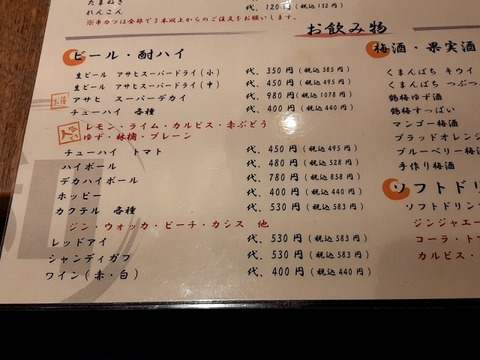 たまねぎ
れんこん 代、120円(税込132円)
※串カツは全部で3本以上からのご注文をお願いします。
お飲み物
ビール・酎ハイ
生ビール アサヒスーパードライ(小) 代、350円(税込385円)
生ビール アサヒスーパードライ(中) 代、450円(税込495円)
アサヒ スーパーデカイ 代、980円(税込1078円)
チューハイ 各種 代、400円(税込440円)
レモン・ライム・カルピス・赤ぶどう
ゆず・林檎・プレーン
チューハイ トマト 代、450円(税込495円)
ハイボール 代、480円(税込528円)
デカハイボール 代、780円(税込858円)
ホッピー 代、400円(税込440円)
カクテル 各種 代、530円(税込583円)
ジン・ウォッカ・ピーチ・カシス 他
レッドアイ 代、530円(税込583円)
シャンディガフ 代、530円(税込583円)
ワイン(赤・白) 代、400円(税込440円)
梅酒・果実酒
くまんばち キウイ
くまんばち つぶ
鶴梅ゆず酒
鶴梅すっぱい
マンゴー梅酒
ブラッドオレン
ブルーベリー梅酒
手作り梅酒
ソフトドリ
ソフトドリン
ジンジャエー
コーラ・ト
カルピス・